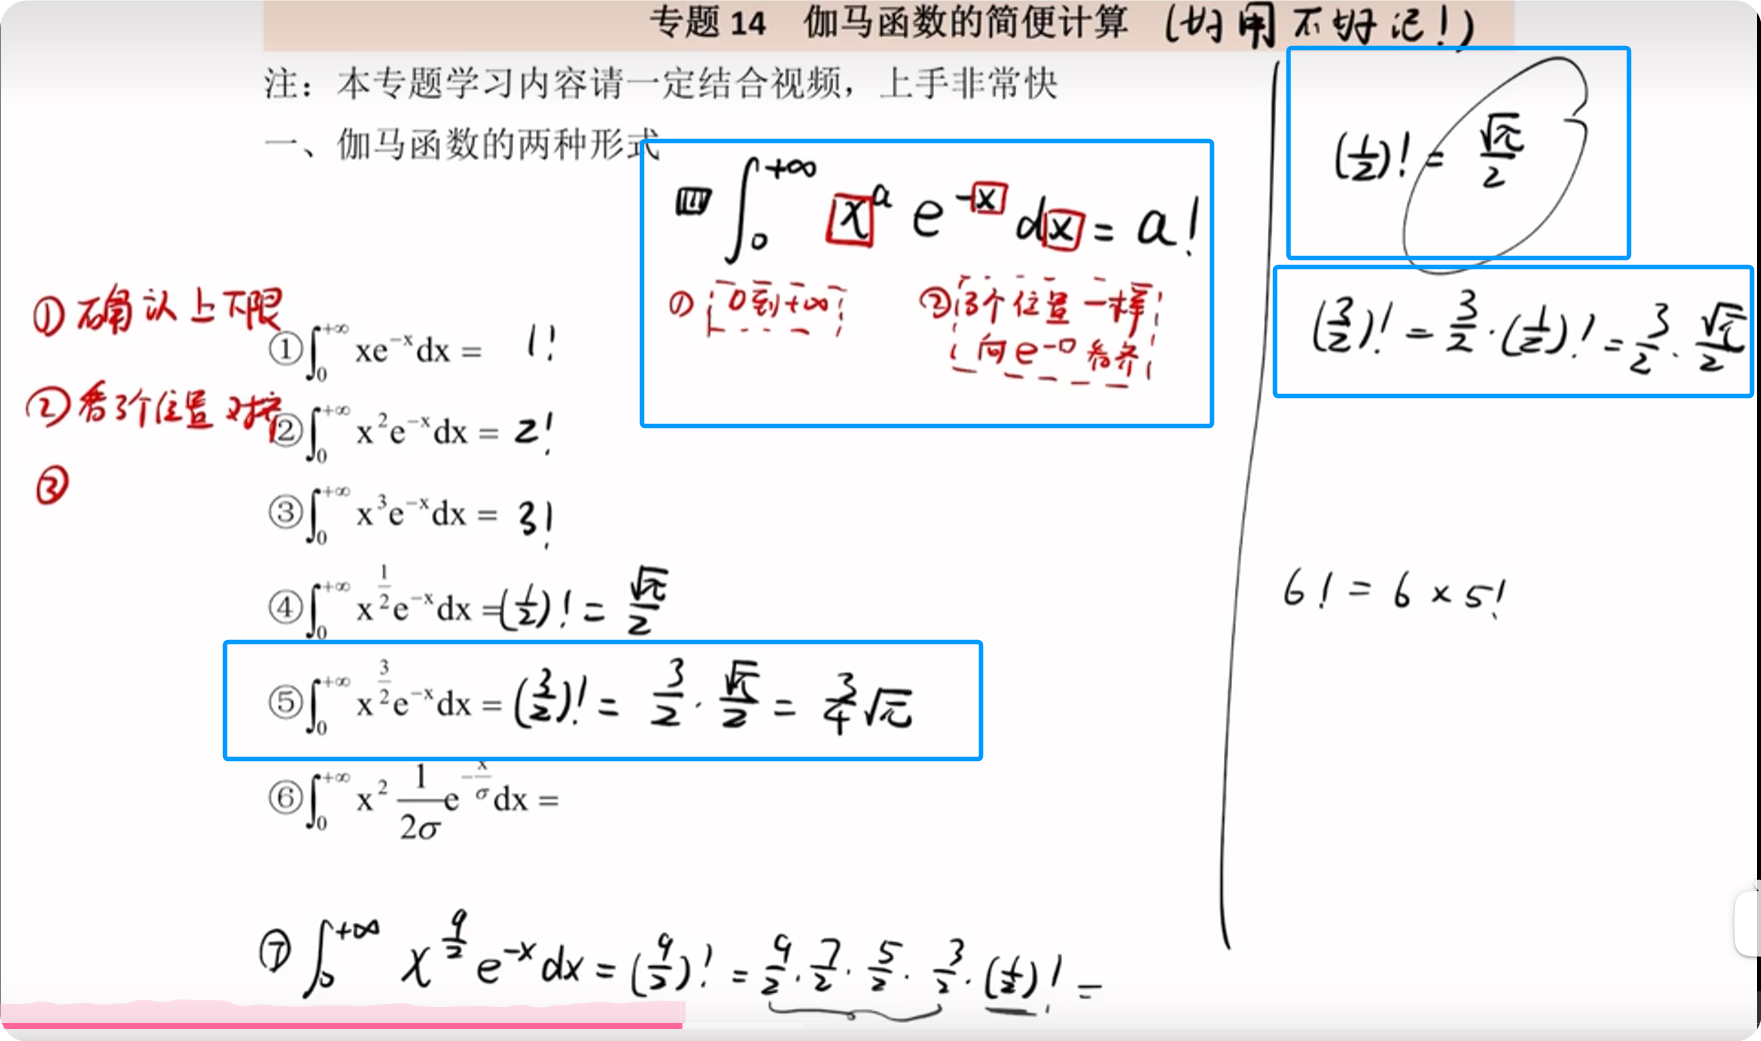 专题 14 伽马函数的简便计算 (好用不好记!)
注：本专题学习内容请一定结合视频，上手非常快
一、伽马函数的两种形式
∫₀^{+∞} x^a e^{-x} dx = a!
① 0到+∞ ② 3个位置一样
向e^{-□}看齐
① 确认上下限
② 看3个位置对齐
③
① ∫₀^{+∞} xe^{-x}dx = 1!
② ∫₀^{+∞} x²e^{-x}dx = 2!
③ ∫₀^{+∞} x³e^{-x}dx = 3!
④ ∫₀^{+∞} x^{1/2}e^{-x}dx = (1/2)! = √π/2
⑤ ∫₀^{+∞} x^{3/2}e^{-x}dx = (3/2)! = 3/2 · √π/2 = 3/4 √π
⑥ ∫₀^{+∞} x² 1/2σ e^{-x/σ}dx =
⑦ ∫₀^{+∞} x^{9/2} e^{-x} dx = (9/2)! = 9/2 · 7/2 · 5/2 · 3/2 · (1/2)! =
(1/2)! = √π/2
(3/2)! = 3/2 · (1/2)! = 3/2 · √π/2
6! = 6 × 5!